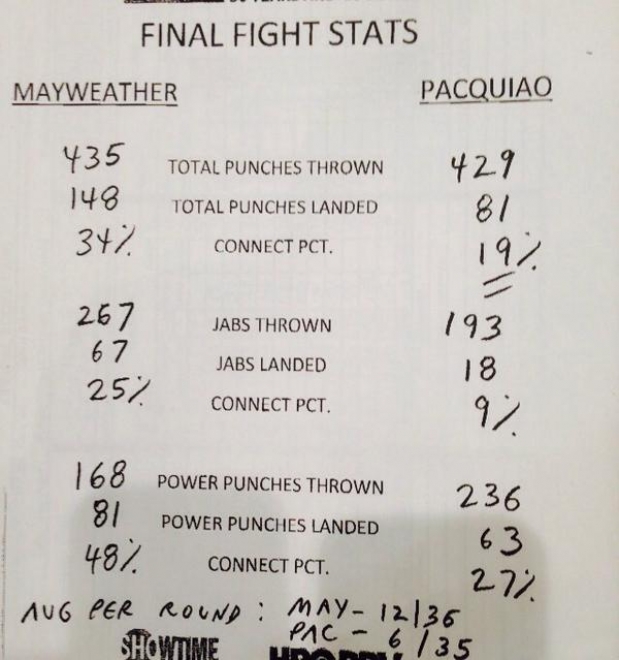 FINAL FIGHT STATS
MAYWEATHER PACQUIAO
435 TOTAL PUNCHES THROWN 429
148 TOTAL PUNCHES LANDED 81
34% CONNECT PCT. 19%
267 JABS THROWN 193
67 JABS LANDED 18
25% CONNECT PCT. 9%
168 POWER PUNCHES THROWN 236
81 POWER PUNCHES LANDED 63
48% CONNECT PCT. 27%
AVG PER ROUND: MAY - 12/36
PAC - 6/35
SHOWTIME HBO PPV